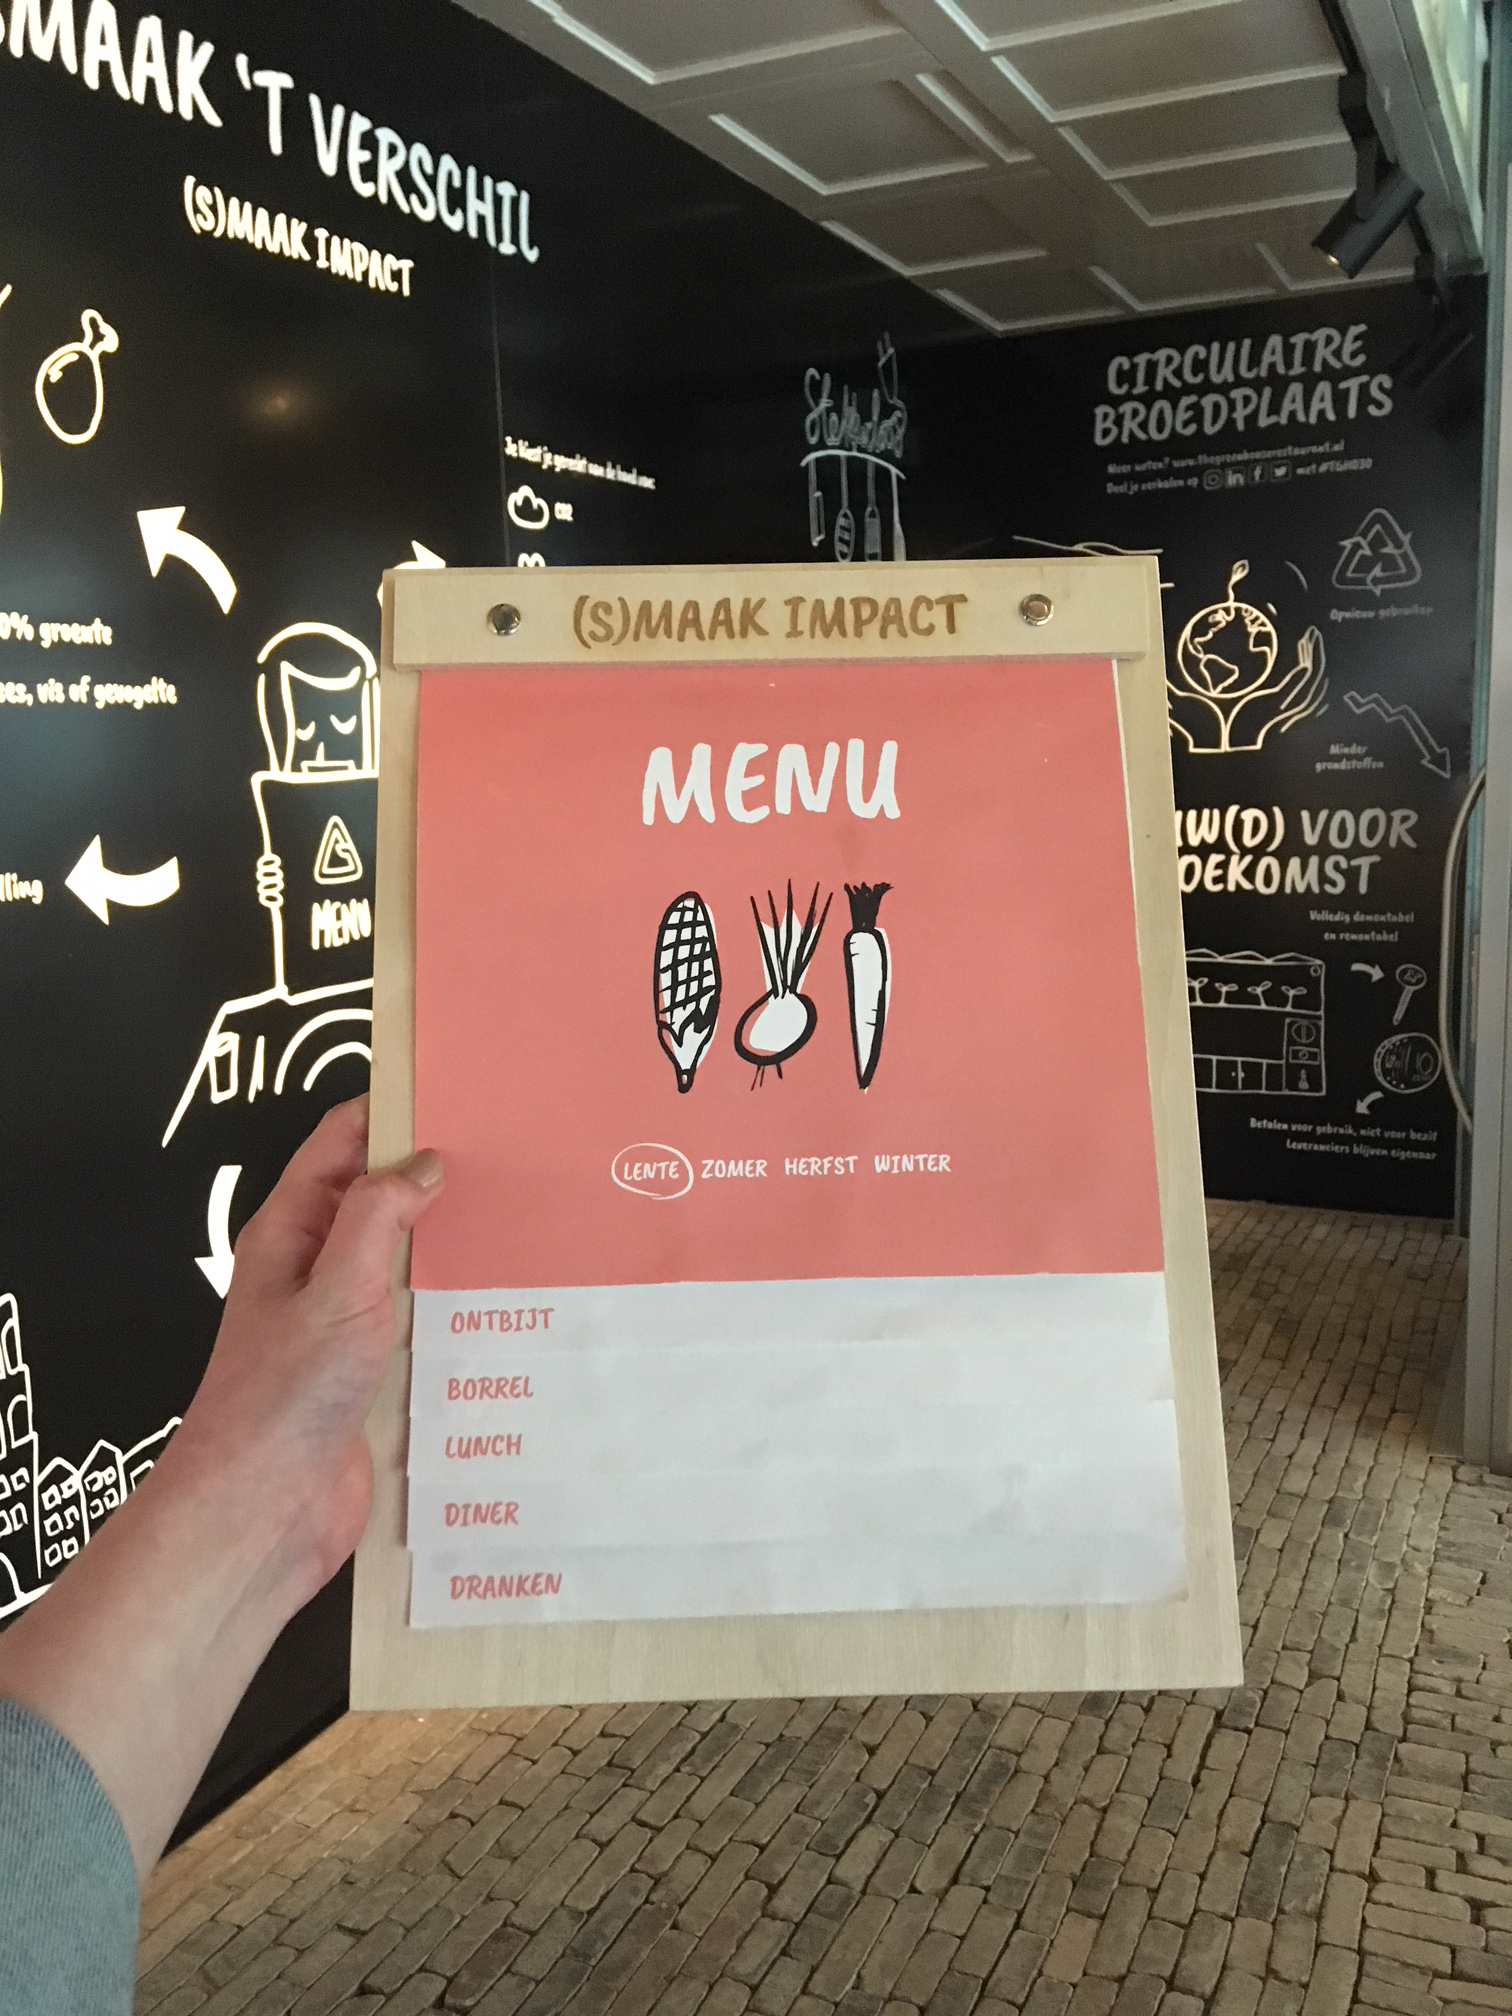 SMAAK 'T VERSCHIL
(S)MAAK IMPACT
Je kiest je gerecht aan de hand van:
CO2
0% groente
vis of gevogelte
MENU
CIRCULAIRE
BROEDPLAATS
Meer weten? www.thegreenhouserestaurant.nl
Deel je verhalen op
met #TGH030
Opnieuw gebruiken
Minder
grondstoffen
VOOR
Volledig demontabel
en remontabel
Betalen voor gebruik, niet voor bezit
Leveranciers blijven eigenaar
(S)MAAK IMPACT
MENU
LENTE ZOMER HERFST WINTER
ONTBIJT
BORREL
LUNCH
DINER
DRANKEN